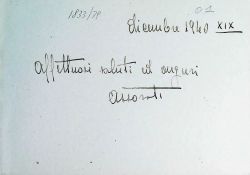 1833/79
01
Dicembre 1940 XIX
Affettuosi saluti ed auguri